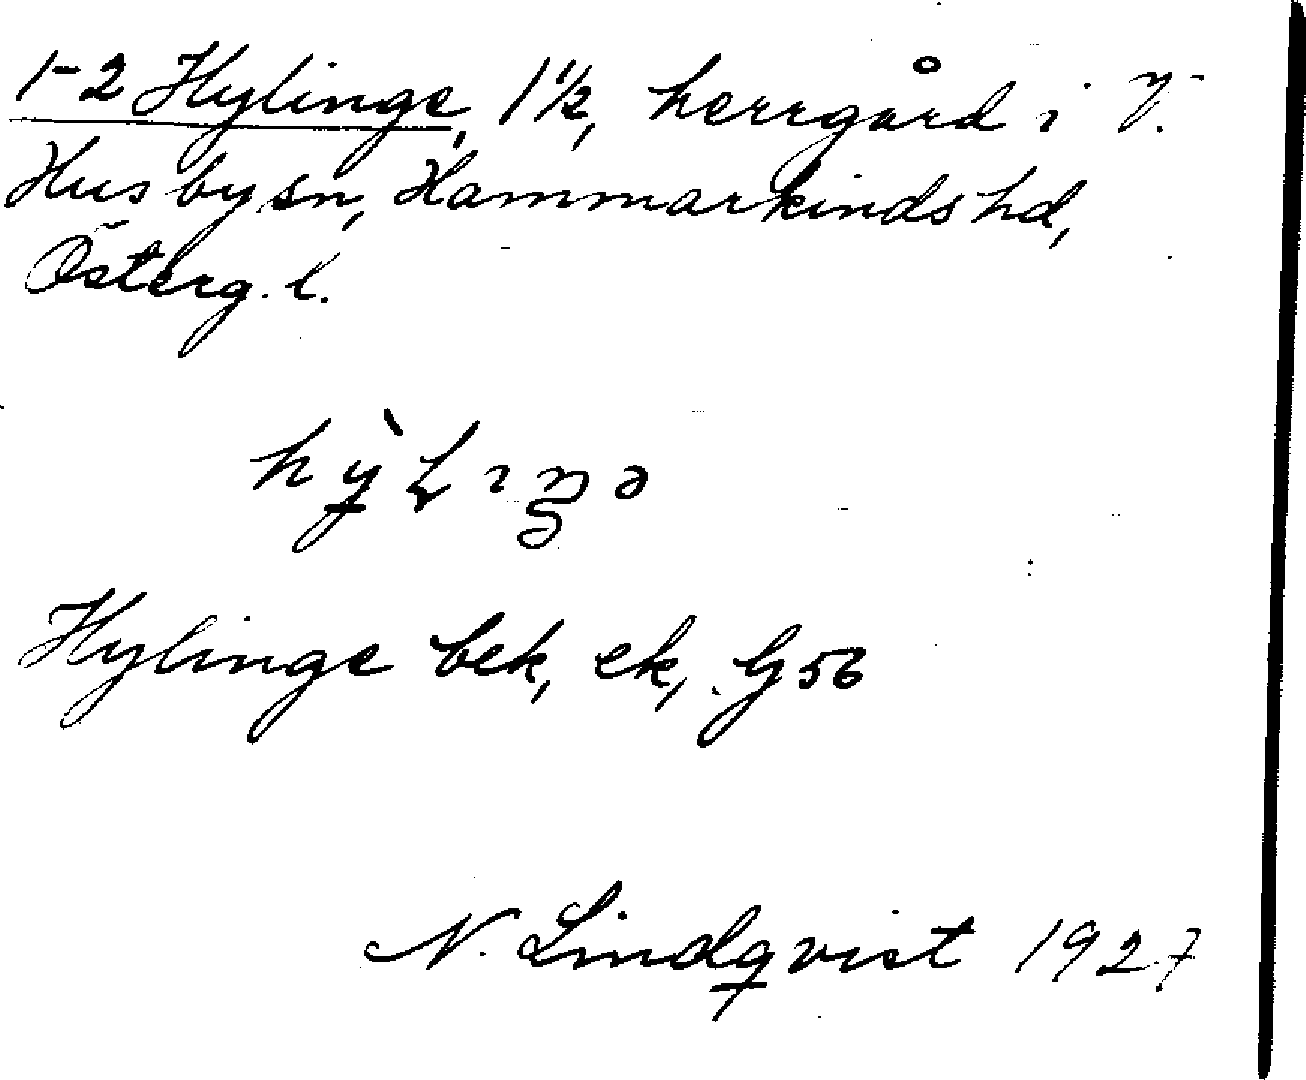 1-2 Hylinge, 1 1/2, herrgård i V.
Husby sn, Hammarkinds hd,
Österg. l.
Hylinge bek, ek, G 56
N. Lindqvist 1927